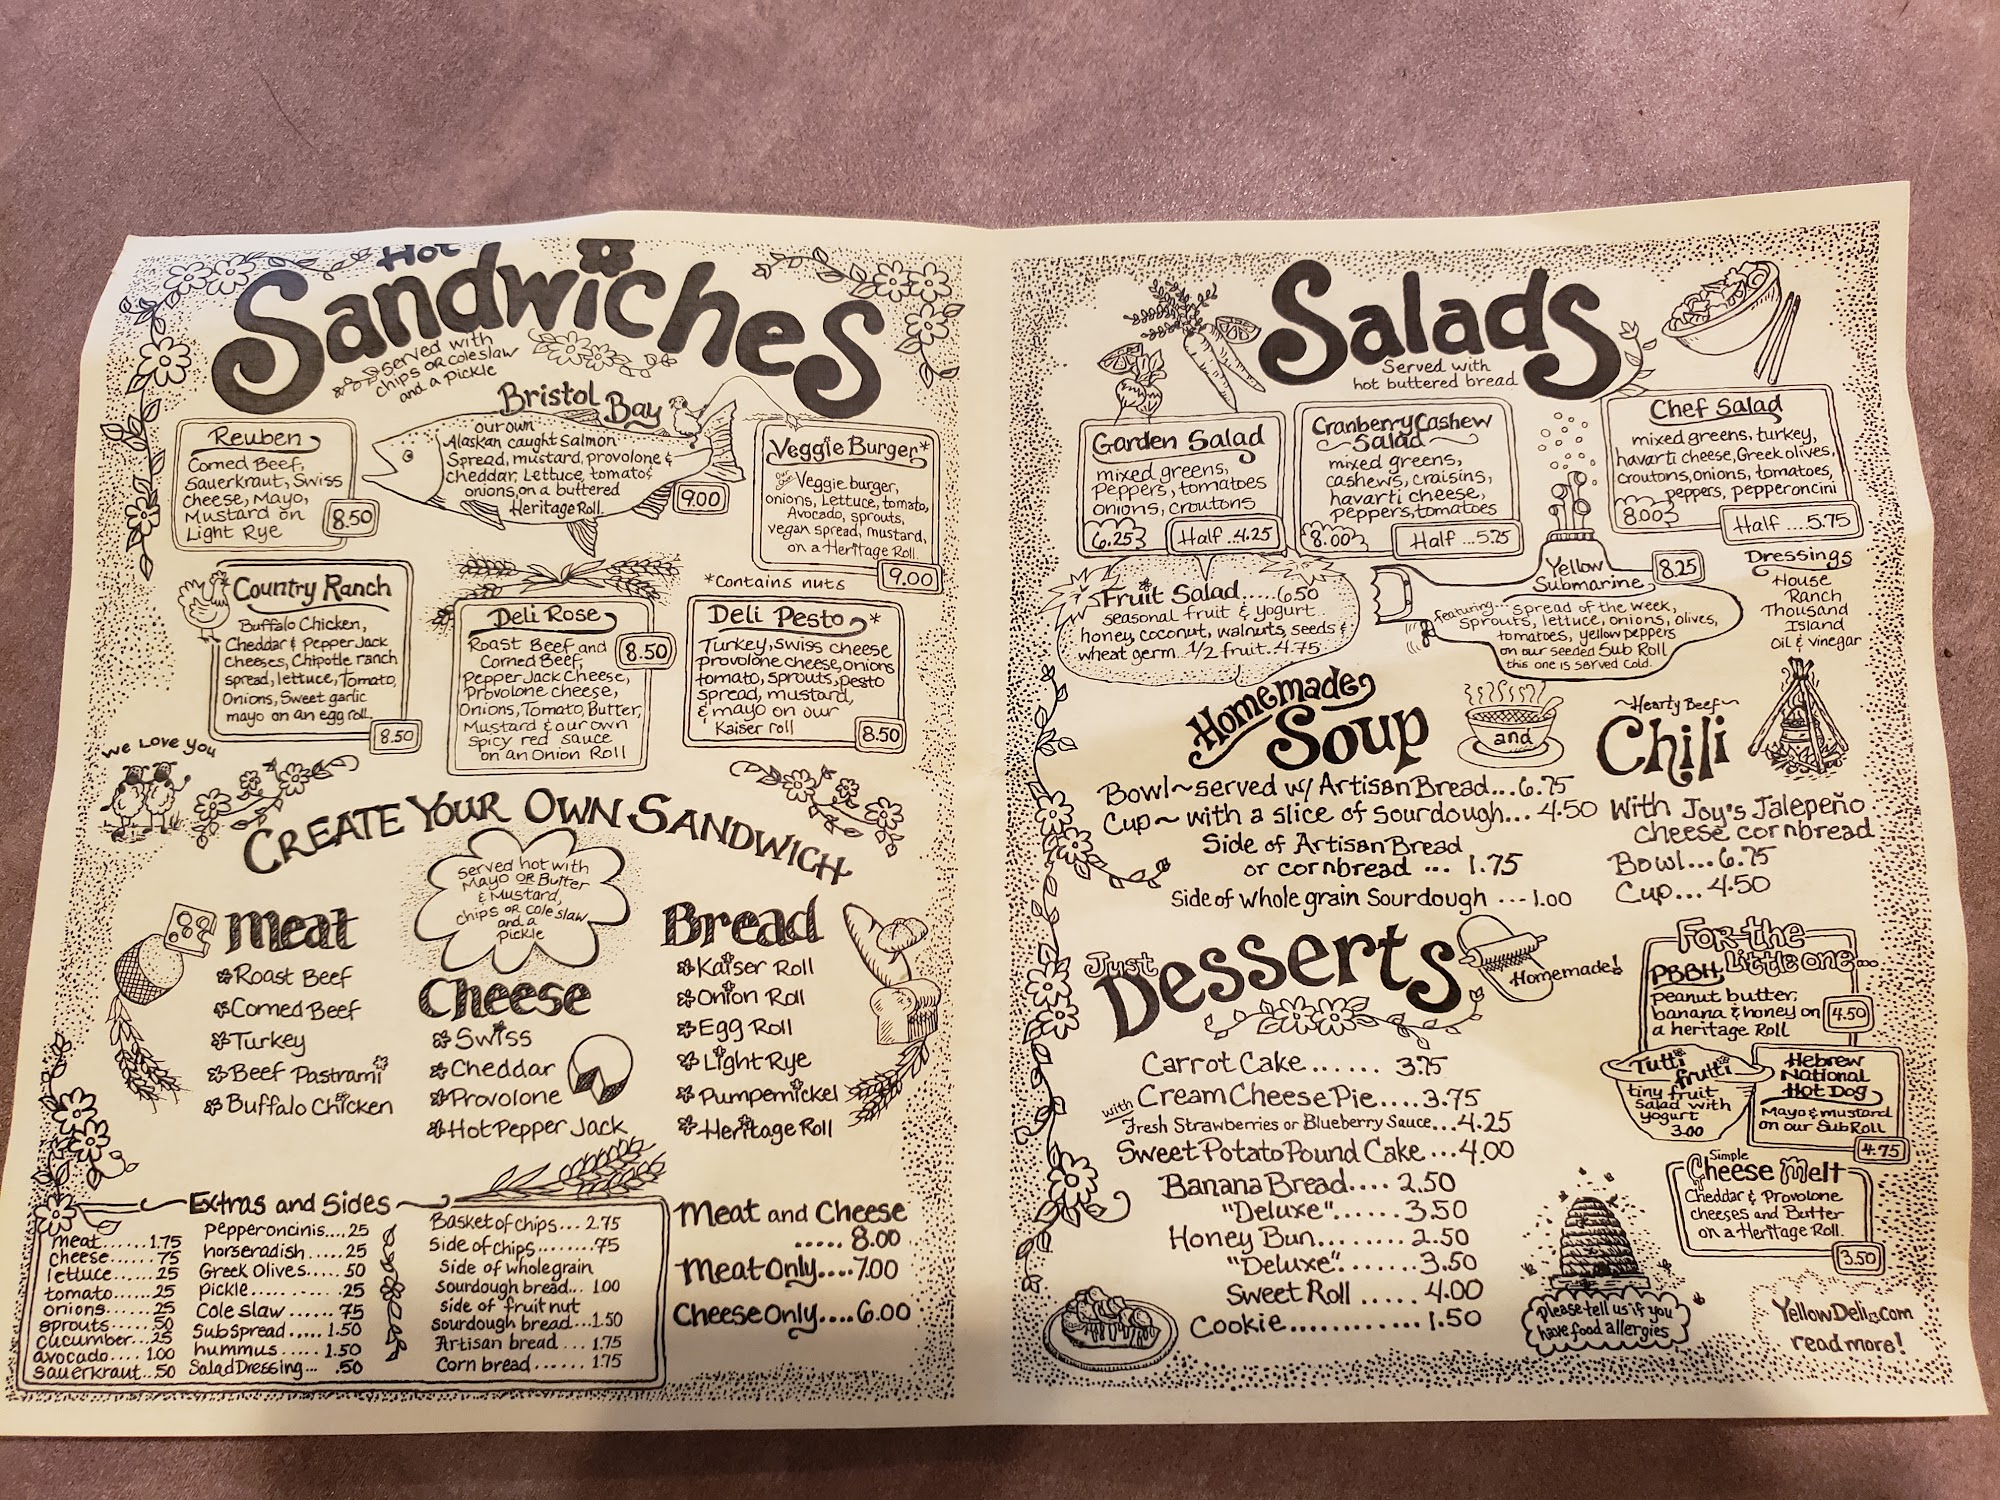 Hot
Sandwiches
served with
chips or coleslaw
and a pickle
Reuben
Corned Beef,
Sauerkraut, Swiss
cheese, Mayo,
Mustard on
Light Rye
8.50
Bristol Bay
our own
Alaskan caught Salmon
Spread, mustard, provolone &
cheddar, Lettuce, tomato &
onions, on a buttered
Heritage Roll.
9.00
Veggie Burger*
our own
Veggie burger,
onions, Lettuce, tomato,
Avocado, sprouts,
vegan spread, mustard,
on a Heritage Roll.
9.00
*Contains nuts
Country Ranch
Buffalo Chicken,
Cheddar & Pepper Jack
cheeses, Chipotle ranch
spread, lettuce, Tomato,
Onions, Sweet garlic
mayo on an egg roll.
8.50
Deli Rose
Roast Beef and
Corned Beef,
Pepper Jack Cheese,
Provolone cheese,
Onions, Tomato, Butter,
Mustard & our own
spicy red sauce
on an Onion Roll
8.50
Deli Pesto*
Turkey, swiss cheese
provolone cheese, onions
tomato, sprouts, pesto
spread, mustard,
& mayo on our
Kaiser roll
8.50
We Love You
Create Your Own Sandwich
served hot with
Mayo or Butter
& Mustard,
chips or coleslaw
and a
pickle
Meat
Roast Beef
Corned Beef
Turkey
Beef Pastrami
Buffalo Chicken
Cheese
Swiss
Cheddar
Provolone
Hot Pepper Jack
Bread
Kaiser Roll
Onion Roll
Egg Roll
Light Rye
Pumpernickel
Heritage Roll
Extras and Sides
meat......1.75
cheese.....75
lettuce......25
tomato.....25
onions......25
sprouts.....50
cucumber...25
avocado....1.00
sauerkraut...50
pepperoncinis....25
horseradish.....25
Greek Olives.....50
pickle...........25
Cole slaw......75
Sub Spread.....1.50
hummus.....1.50
Salad Dressing....50
Basket of chips...2.75
Side of chips........75
Side of wholegrain
sourdough bread...1.00
side of fruit nut
sourdough bread...1.50
Artisan bread...1.75
Corn bread......1.75
Meat and Cheese
.....8.00
Meat Only....7.00
Cheese Only....6.00
Salads
Served with
hot buttered bread
Garden Salad
mixed greens,
Peppers, tomatoes
onions, croutons
6.25
Half..4.25
Cranberry Cashew
Salad
mixed greens,
cashews, craisins,
havarti cheese,
peppers, tomatoes
8.00
Half...5.25
Chef Salad
mixed greens, turkey,
havarti cheese, Greek olives,
croutons, onions, tomatoes,
peppers, pepperoncini
8.00
Half...5.75
Fruit Salad.....6.50
seasonal fruit & yogurt
honey, coconut, walnuts, seeds &
wheat germ...1/2 fruit..4.75
Yellow
Submarine
8.25
featuring... spread of the week,
sprouts, lettuce, onions, olives,
tomatoes, yellow peppers
on our seeded Sub Roll
this one is served cold.
Dressings
House
Ranch
Thousand
Island
Oil & vinegar
Homemade
Soup
and
Bowl~served w/ Artisan Bread...6.75
Cup~ with a slice of sourdough...4.50
Side of Artisan Bread
or cornbread ... 1.75
Side of whole grain Sourdough ...1.00
~Hearty Beef~
Chili
With Joy's Jalepeño
cheese cornbread
Bowl...6.75
Cup...4.50
Just
Desserts
Homemade!
Carrot Cake...... 3.75
Cream Cheese Pie....3.75
with
Fresh Strawberries or Blueberry Sauce...4.25
Sweet Potato Pound Cake...4.00
Banana Bread....2.50
"Deluxe"......3.50
Honey Bun........2.50
"Deluxe".......3.50
Sweet Roll.....4.00
Cookie............1.50
For the
Little one...
PBBH
peanut butter,
banana & honey on
a heritage Roll
4.50
Tutti
frutti
tiny fruit
salad with
yogurt
3.00
Hebrew
National
Hot Dog
Mayo & mustard
on our Sub Roll
4.75
Simple
Cheese Melt
Cheddar & Provolone
cheeses and Butter
on a Heritage Roll.
3.50
please tell us if you
have food allergies
YellowDeli.com
read more!